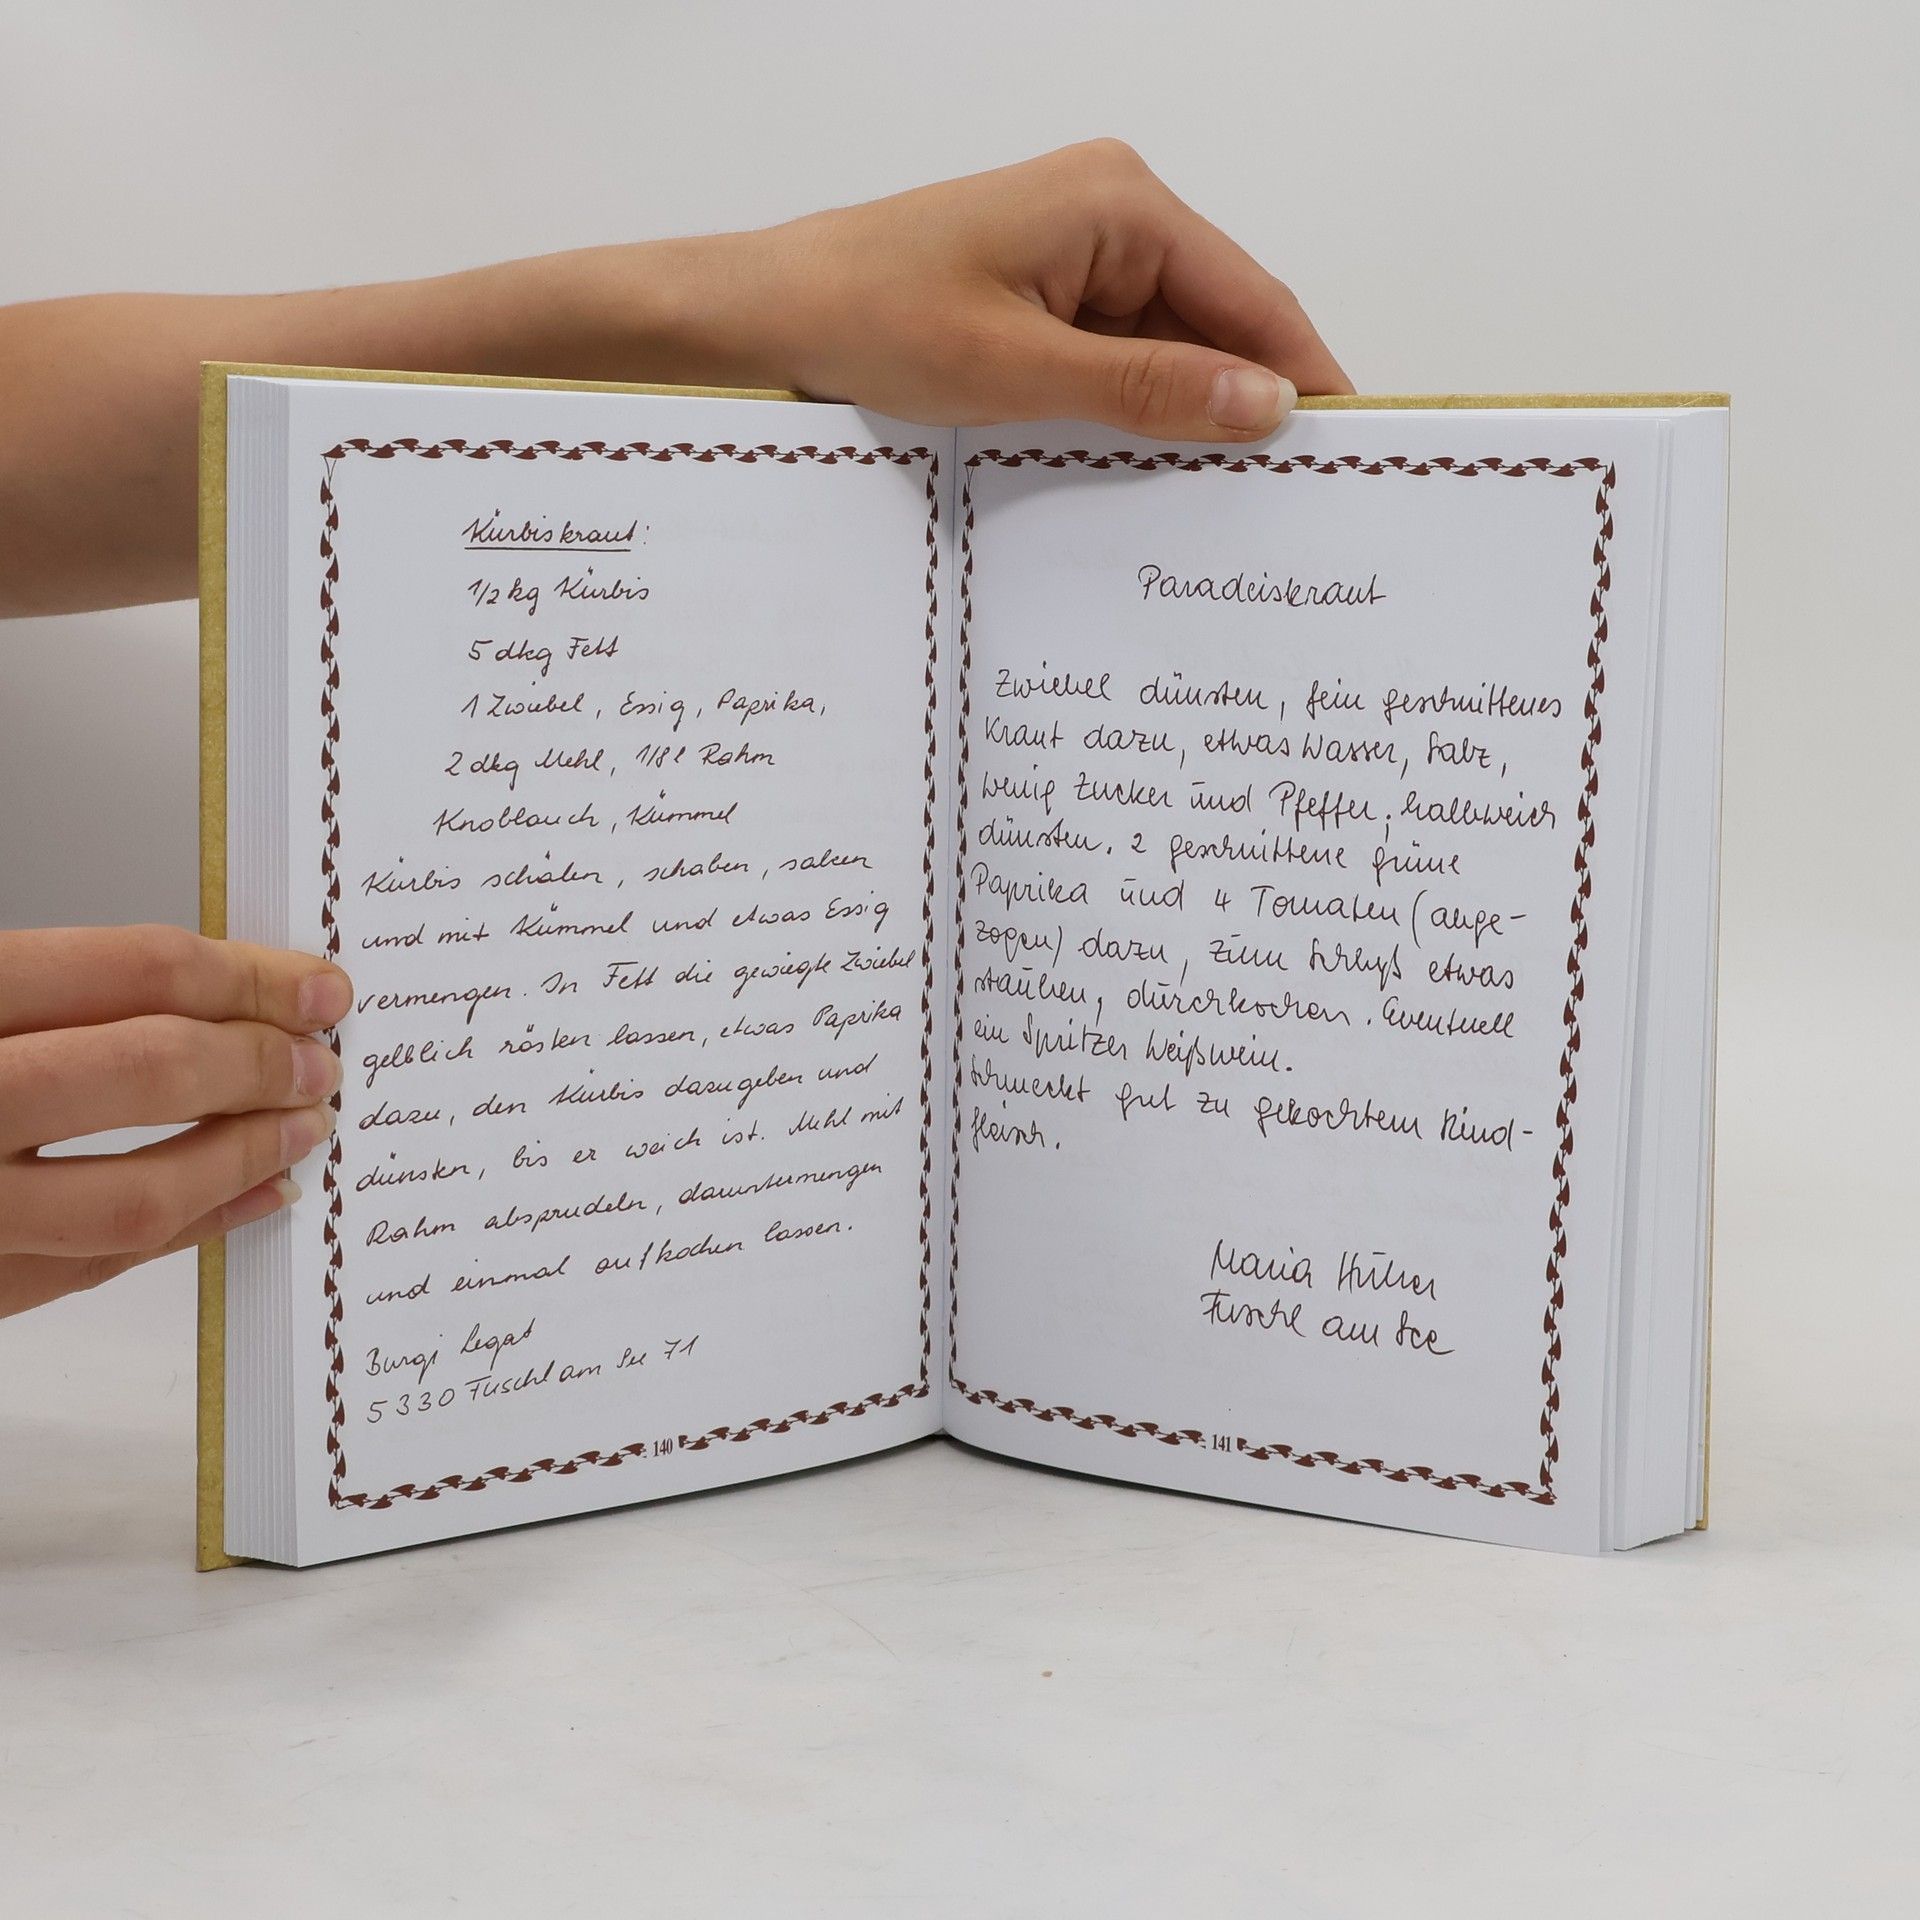 Kürbiskraut:
1/2 kg Kürbis
5 dkg Fett
1 Zwiebel, Essig, Paprika,
2 dkg Mehl, 1/8 l Rahm
Knoblauch, Kümmel
Kürbis schälen, schaben, salzen
und mit Kümmel und etwas Essig
vermengen. In Fett die gewiegte Zwiebel
gelblich rösten lassen, etwas Paprika
dazu, den Kürbis dazugeben und
dünsten, bis er weich ist. Mehl mit
Rahm absprudeln, daruntermengen
und einmal aufkochen lassen.
Burgi Legat
5330 Fuschl am See 71
140
Paradeiskraut
Zwiebel dünsten, fein geschnittenes
Kraut dazu, etwas Wasser, Salz,
wenig Zucker und Pfeffer; halbweich
dünsten. 2 geschnittene grüne
Paprika und 4 Tomaten (abge-
zogen) dazu, zum Schluß etwas
stauben, durchkochen. Eventuell
ein Spritzer Weißwein.
Schmeckt gut zu gekochtem Rind-
fleisch.
Maria Huber
Fuschl am See
141